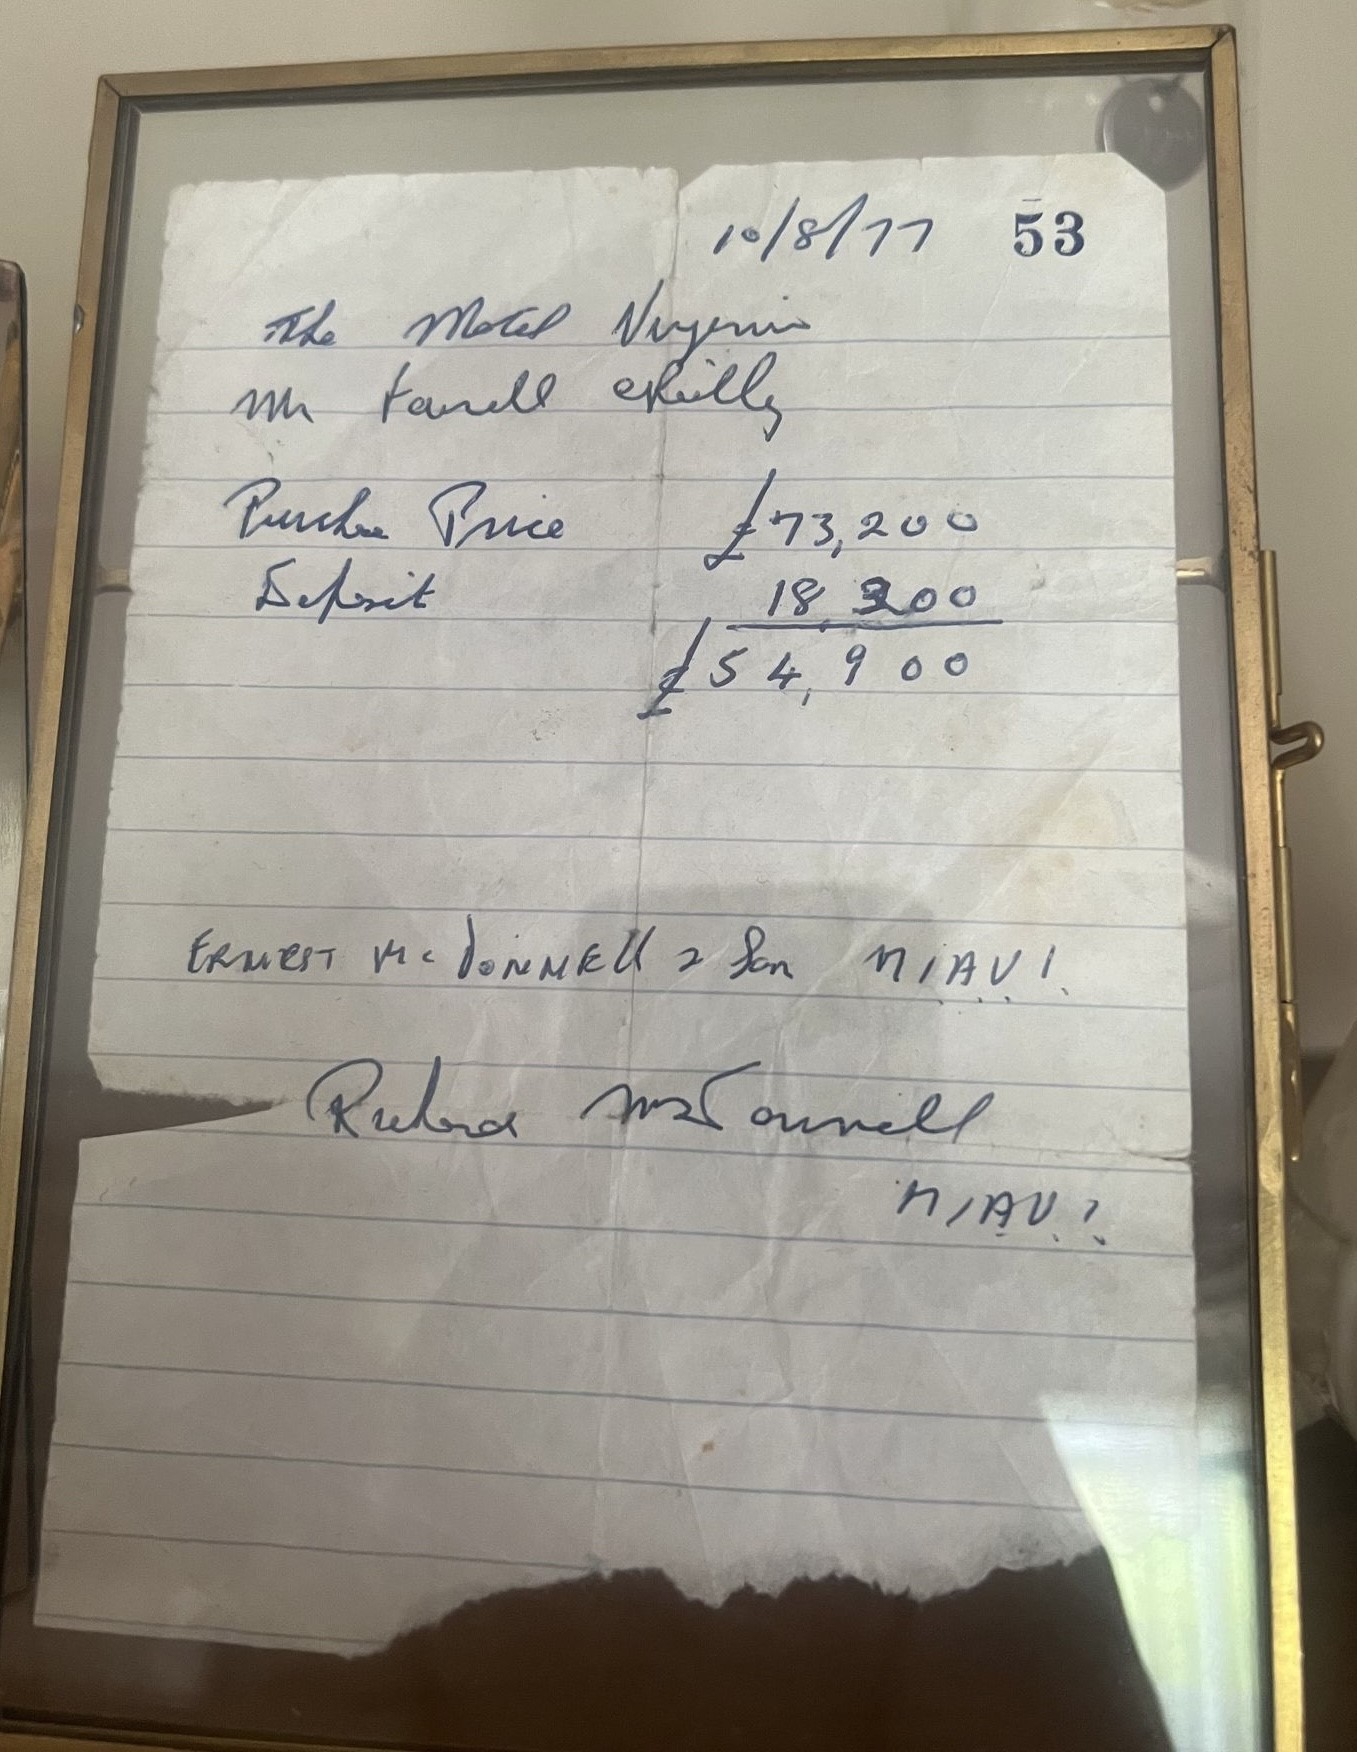 10/8/77 53
The Motel Virginia
Mr Farrell OReilly
Purchase Price £73,200
Deposit 18,300
£54,900
ERNEST McDONNELL & Son MIAVI
Richard McDonnell
MIAVI